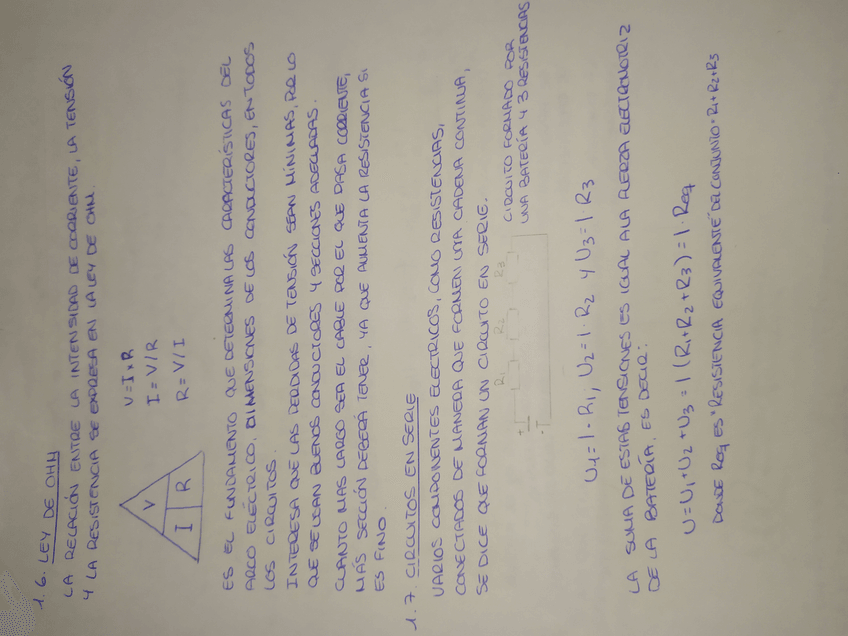 1.6. LEY DE OHM
LA RELACIÓN ENTRE LA INTENSIDAD DE CORRIENTE, LA TENSIÓN
Y LA RESISTENCIA SE EXPRESA EN LA LEY DE OHM.
V
I R
V = I x R
I = V / R
R = V / I
ES EL FUNDAMENTO QUE DETERMINA LAS CARACTERÍSTICAS DEL
ARCO ELÉCTRICO, DIMENSIONES DE LOS CONDUCTORES, EN TODOS
LOS CIRCUITOS.
INTERESA QUE LAS PERDIDAS DE TENSIÓN SEAN MÍNIMAS, POR LO
QUE SE USAN BUENOS CONDUCTORES Y SECCIONES ADECUADAS.
CUANTO MAS LARGO SEA EL CABLE POR EL QUE PASA CORRIENTE,
MÁS SECCIÓN DEBERÁ TENER, YA QUE AUMENTA LA RESISTENCIA SI
ES FINO.
1.7. CIRCUITOS EN SERIE
VARIOS COMPONENTES ELECTRICOS, COMO RESISTENCIAS,
CONECTADOS DE MANERA QUE FORMEN UNA CADENA CONTINUA,
SE DICE QUE FORMAN UN CIRCUITO EN SERIE.
R1 R2 R3
+
-
CIRCUITO FORMADO POR
UNA BATERÍA Y 3 RESISTENCIAS
U1 = I · R1, U2 = I · R2 Y U3 = I · R3
LA SUMA DE ESTAS TENSIONES ES IGUAL A LA FUERZA ELECTROMOTRIZ
DE LA BATERÍA, ES DECIR:
U = U1 + U2 + U3 = I (R1 + R2 + R3) = I · Req
DONDE Req ES "RESISTENCIA EQUIVALENTE" DEL CONJUNTO = R1 + R2 + R3